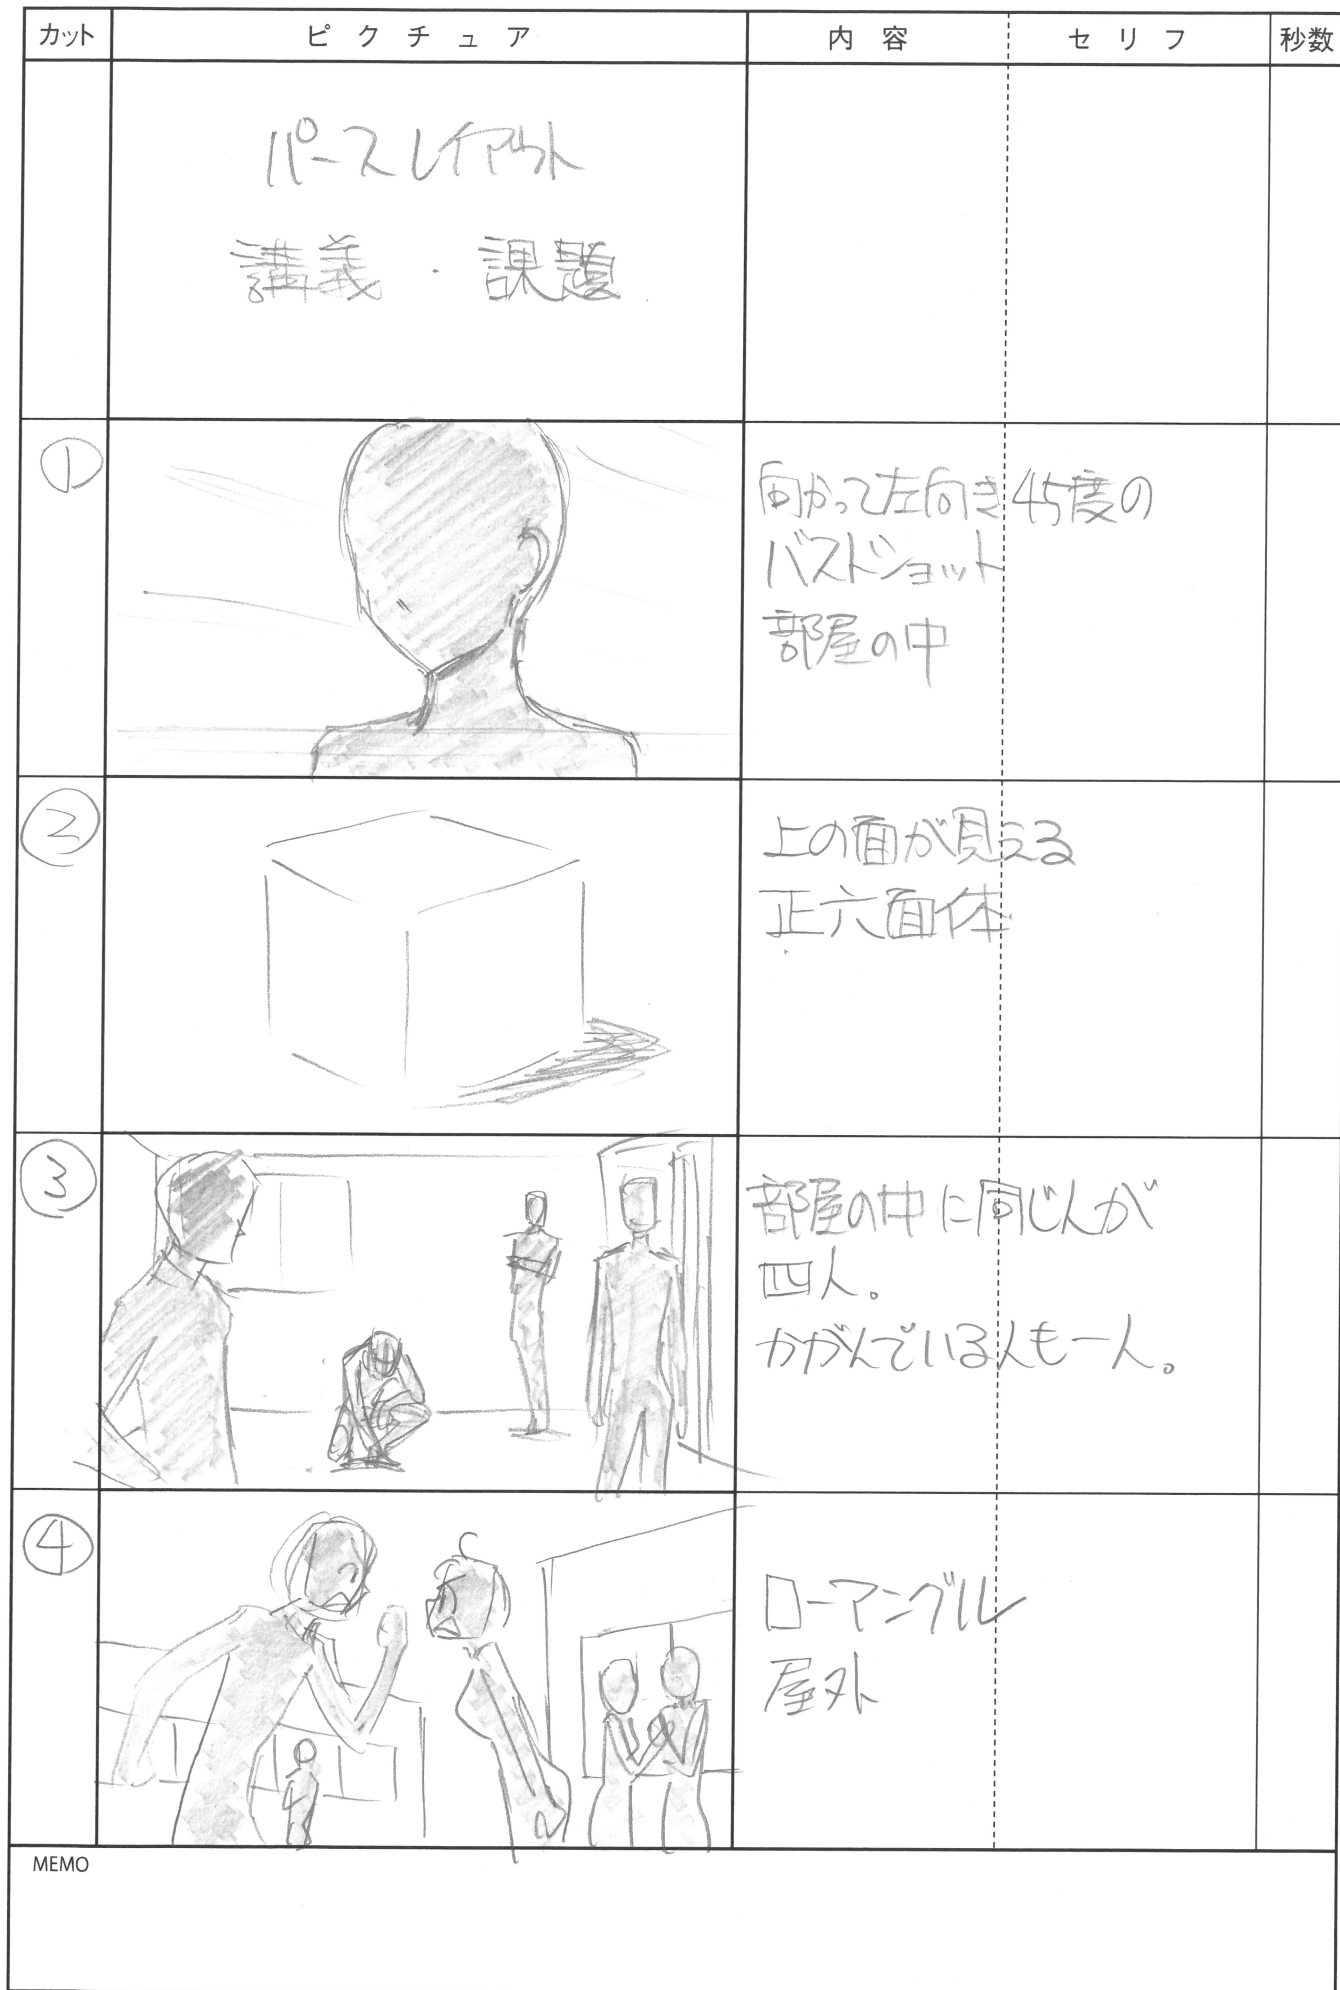 カット ピクチュア 内容 セリフ 秒数
パースレイアウト
講義・課題
①
向かって左向き45度の
バストショット
部屋の中
②
上の面が見える
正六面体
③
部屋の中に同じ人が
四人。
かがんでいる人も一人。
④
ローアングル
屋外
MEMO